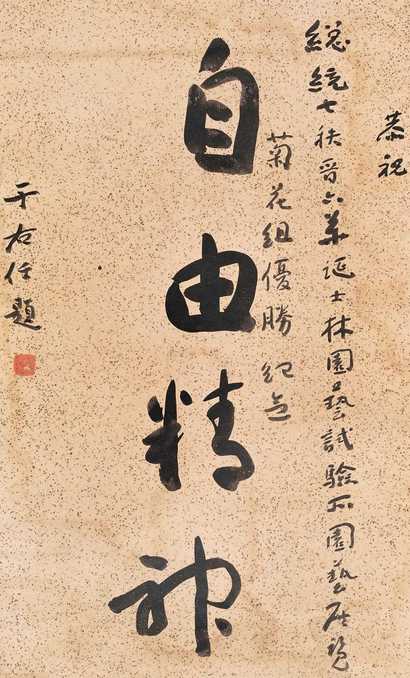 恭祝
總統七秩晉六華誕士林園藝試驗所園藝展覽
菊花組優勝紀念
自由精神
于右任題